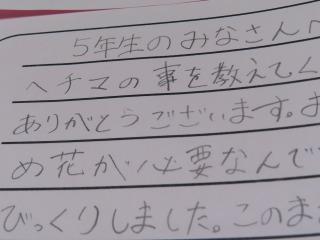 5年生のみなさんへ
ヘチマの事を教えてく
ありがとうございます。お
め花が必要なんで
びっくりしました。このま